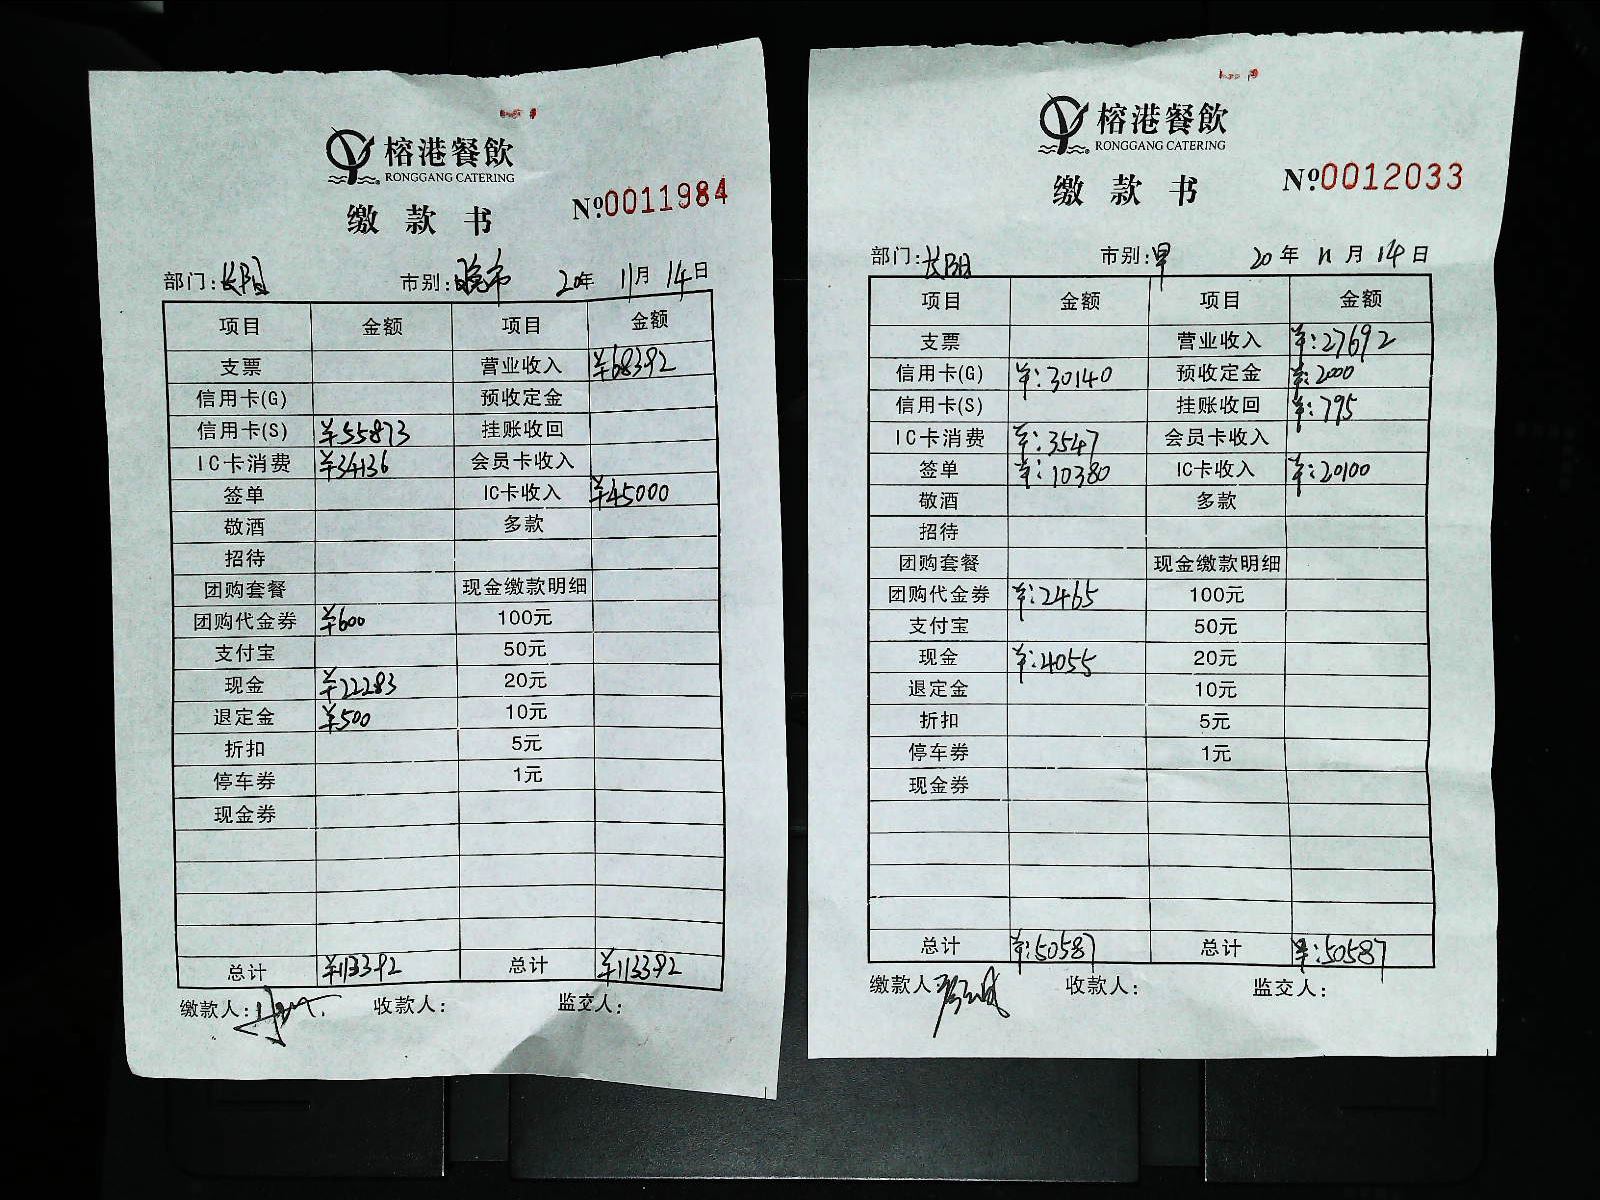 榕港餐飲
RONGGANG CATERING
缴款书
№0011984
部门:长阳 市别:晚市 20年 11月 14日
项目 金额 项目 金额
支票 营业收入 ¥68392
信用卡(G) 预收定金
信用卡(S) ¥55873 挂账收回
IC卡消费 ¥34136 会员卡收入
签单 IC卡收入 ¥45000
敬酒 多款
招待
团购套餐 现金缴款明细
团购代金券 ¥600 100元
支付宝 50元
现金 ¥22283 20元
退定金 ¥500 10元
折扣 5元
停车券 1元
现金券
总计 ¥113392 总计 ¥113392
缴款人: 收款人: 监交人:
榕港餐飲
RONGGANG CATERING
缴款书
№0012033
部门:长阳 市别:早 20年 11月 14日
项目 金额 项目 金额
支票 营业收入 ¥:27692
信用卡(G) ¥:30140 预收定金 ¥:2000
信用卡(S) 挂账收回 ¥:795
IC卡消费 ¥:3547 会员卡收入
签单 ¥:10380 IC卡收入 ¥:20100
敬酒 多款
招待
团购套餐 现金缴款明细
团购代金券 ¥:2465 100元
支付宝 50元
现金 ¥:4055 20元
退定金 10元
折扣 5元
停车券 1元
现金券
总计 ¥:50587 总计 ¥:50587
缴款人: 收款人: 监交人: